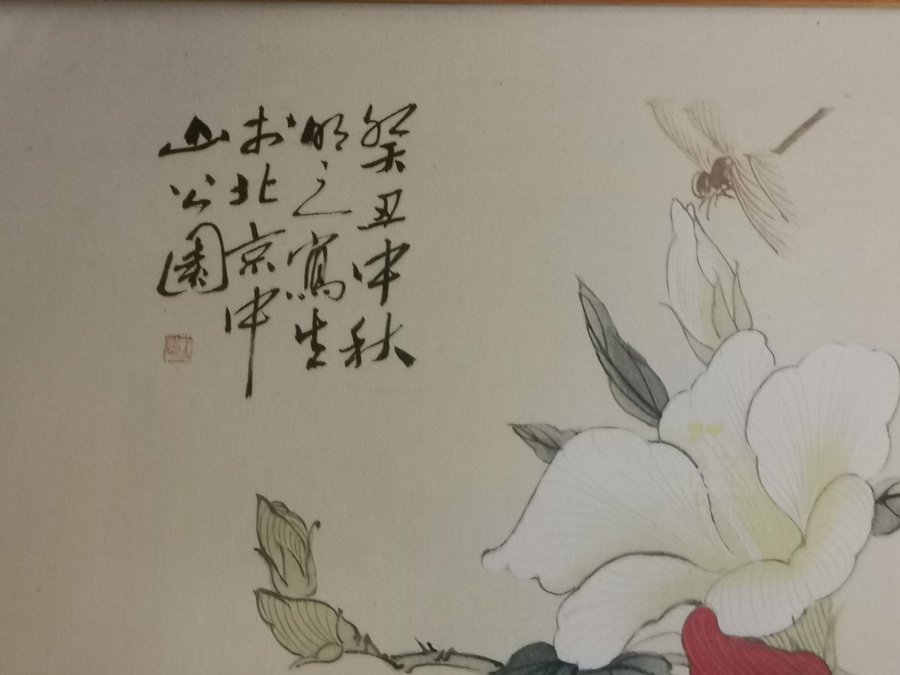 癸丑中秋
明之寫生
於北京中
山公園